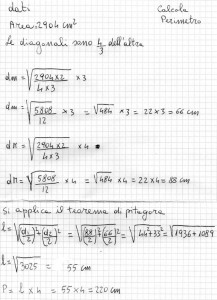 dati
Calcola
Perimetro
Area: 2904 cm²
Le diagonali sono 4/3 dell'altra
dm = √(2904×2 / 4×3) × 3
dm = √(5808 / 12) × 3 = √484 × 3 = 22×3 = 66 cm
dM = √(2904×2 / 4×3) × 4
dM = √(5808 / 12) × 4 = √484 × 4 = 22×4 = 88 cm
Si applica il teorema di pitagora
l = √((d1/2)² + (d2/2)²) = √((88/2)² + (66/2)²) = √(44²+33²) = √(1936+1089)
l = √3025 = 55 cm
P = l × 4 = 55×4 = 220 cm